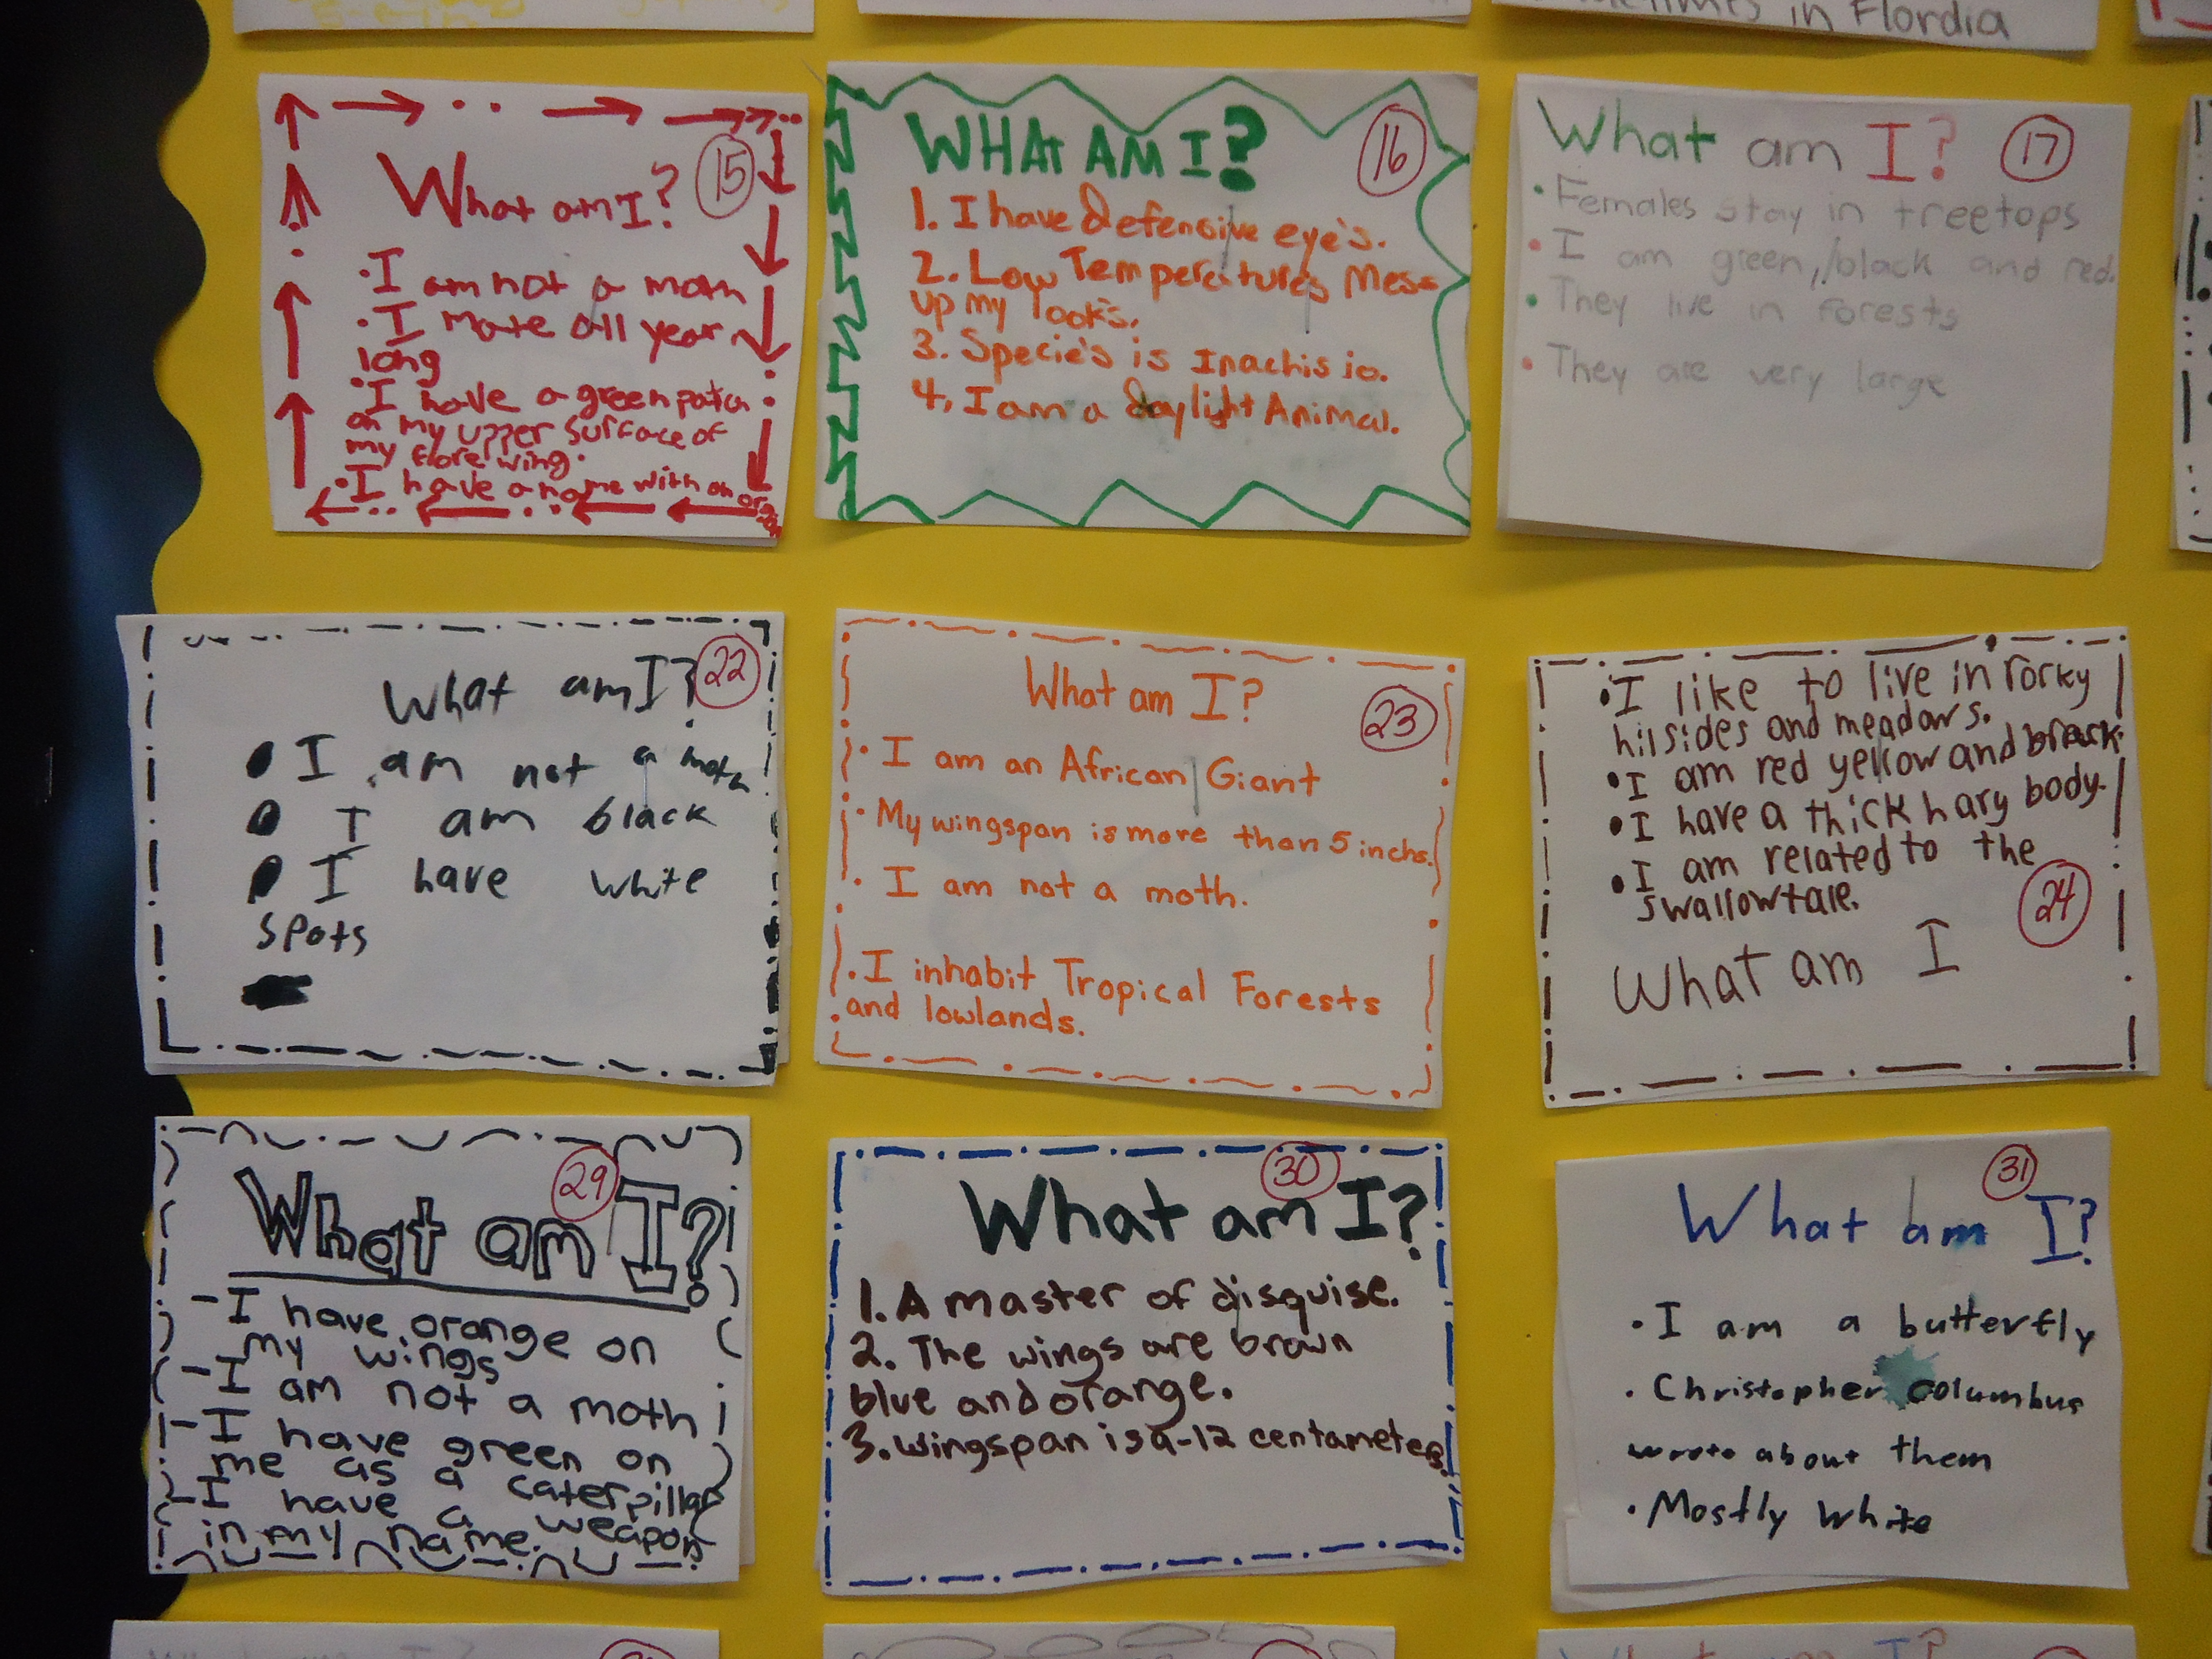 in Flordia
What am I?
15
• I am not a moth
• I mate all year
long
• I have a green patch
on my upper surface of
my fore wing.
• I have a name with an
WHAT AM I?
16
1. I have defensive eye's.
2. Low Temperatures Mess
up my looks.
3. Specie's is Inachis io.
4. I am a daylight Animal.
What am I?
17
• Females stay in treetops
• I am green, black and red.
• They live in forests
• They are very large
What am I?
22
• I am not a moth
• I am black
• I have white
spots
What am I?
23
• I am an African Giant
• My wingspan is more than 5 inchs.
• I am not a moth.
• I inhabit Tropical Forests
and lowlands.
• I like to live in rorky
hilsides and meadows.
• I am red yellow and black.
• I have a thick hary body.
• I am related to the
swallowtale.
24
What am I
29
What am I?
- I have orange on
my wings
- I am not a moth
- I have green on
me as a caterpillar
- I have a weapon
in my name.
30
What am I?
1. A master of disguise.
2. The wings are brown
blue and orange.
3. wingspan is 9-12 centameters.
31
What am I?
• I am a butterfly
• Christopher columbus
wrote about them
• Mostly white